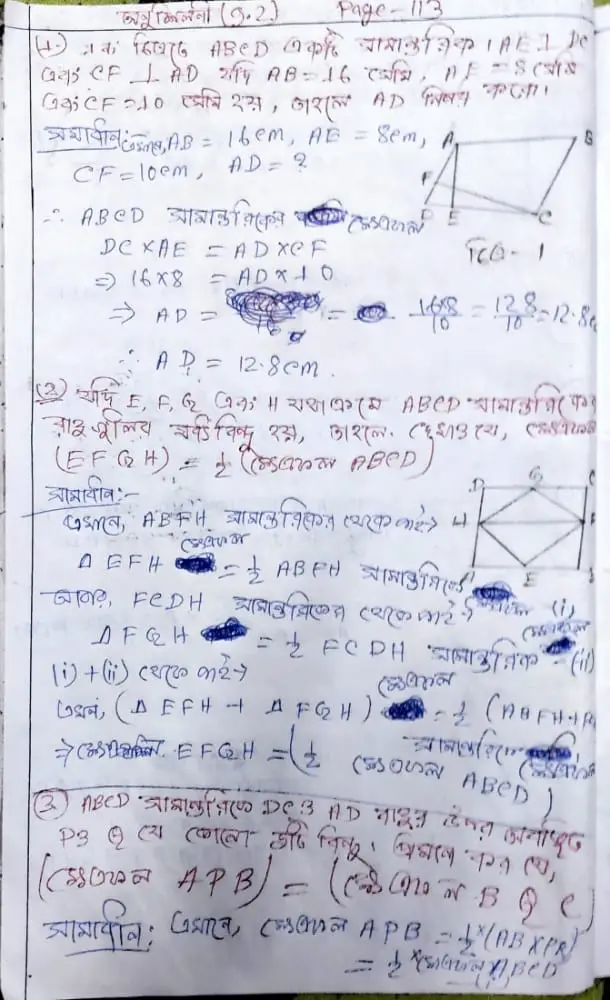 অনুশীলনী (9.2) Page - 113
(1) এবং চিত্রতে ABCD একটি সামান্তরিক। AE ⊥ DC
এবং CF ⊥ AD যদি AB = 16 সেমি, AE = 8 সেমি
এবং CF = 10 সেমি হয়, তাহলে AD নির্ণয় করো।
সমাধান: এখানে, AB = 16 cm, AE = 8 cm,
CF = 10 cm, AD = ?
A B
F
D E C
∴ ABCD সামান্তরিকের ক্ষেত্রফল
FIG - 1
DC × AE = AD × CF
⇒ 16 × 8 = AD × 10
⇒ AD = = 16×8/10 = 128/10 = 12.8c
∴ AD = 12.8 cm.
(2) যদি E, F, G এবং H যথাক্রমে ABCD সামান্তরিকের
বাহুগুলির মধ্যবিন্দু হয়, তাহলে দেখাও যে, ক্ষেত্রফল
(EFGH) = ½ (ক্ষেত্রফল ABCD)
সমাধান:-
D G C
H F
A E B
এখানে, ABFH সামান্তরিকের থেকে পাই→
Δ EFH ক্ষেত্রফল = ½ ABFH সামান্তরিকের
আবার, FCDH সামান্তরিকের থেকে পাই→ ক্ষেত্রফল (i)
Δ FGH = ½ FCDH সামান্তরিক ক্ষেত্রফল - (ii)
(i) + (ii) থেকে পাই→ ক্ষেত্রফল
এখন, (Δ EFH + Δ FGH) = ½ (ABFH + F
সামান্তরিকের ক্ষেত্রফল
⇒ EFGH = (½ ক্ষেত্রফল ABCD)
(3) ABCD সামান্তরিকে DC ও AD বাহুর উপর অবস্থিত
P ও Q যে কোনো দুটি বিন্দু। প্রমাণ কর যে,
(ক্ষেত্রফল APB) = (ক্ষেত্রফল BQC)
সমাধান: এখানে, ক্ষেত্রফল APB = ½ × (AB × PR)
= ½ × ক্ষেত্রফল ABCD